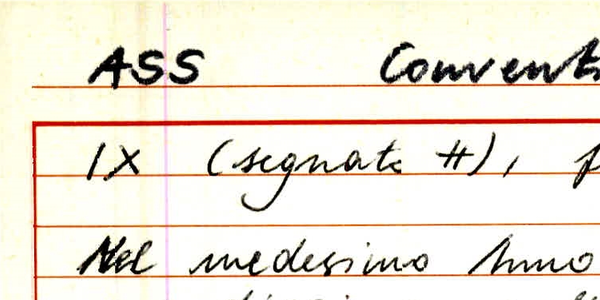 ASS Convent
IX (segnate #), f
Nel medesimo Anno